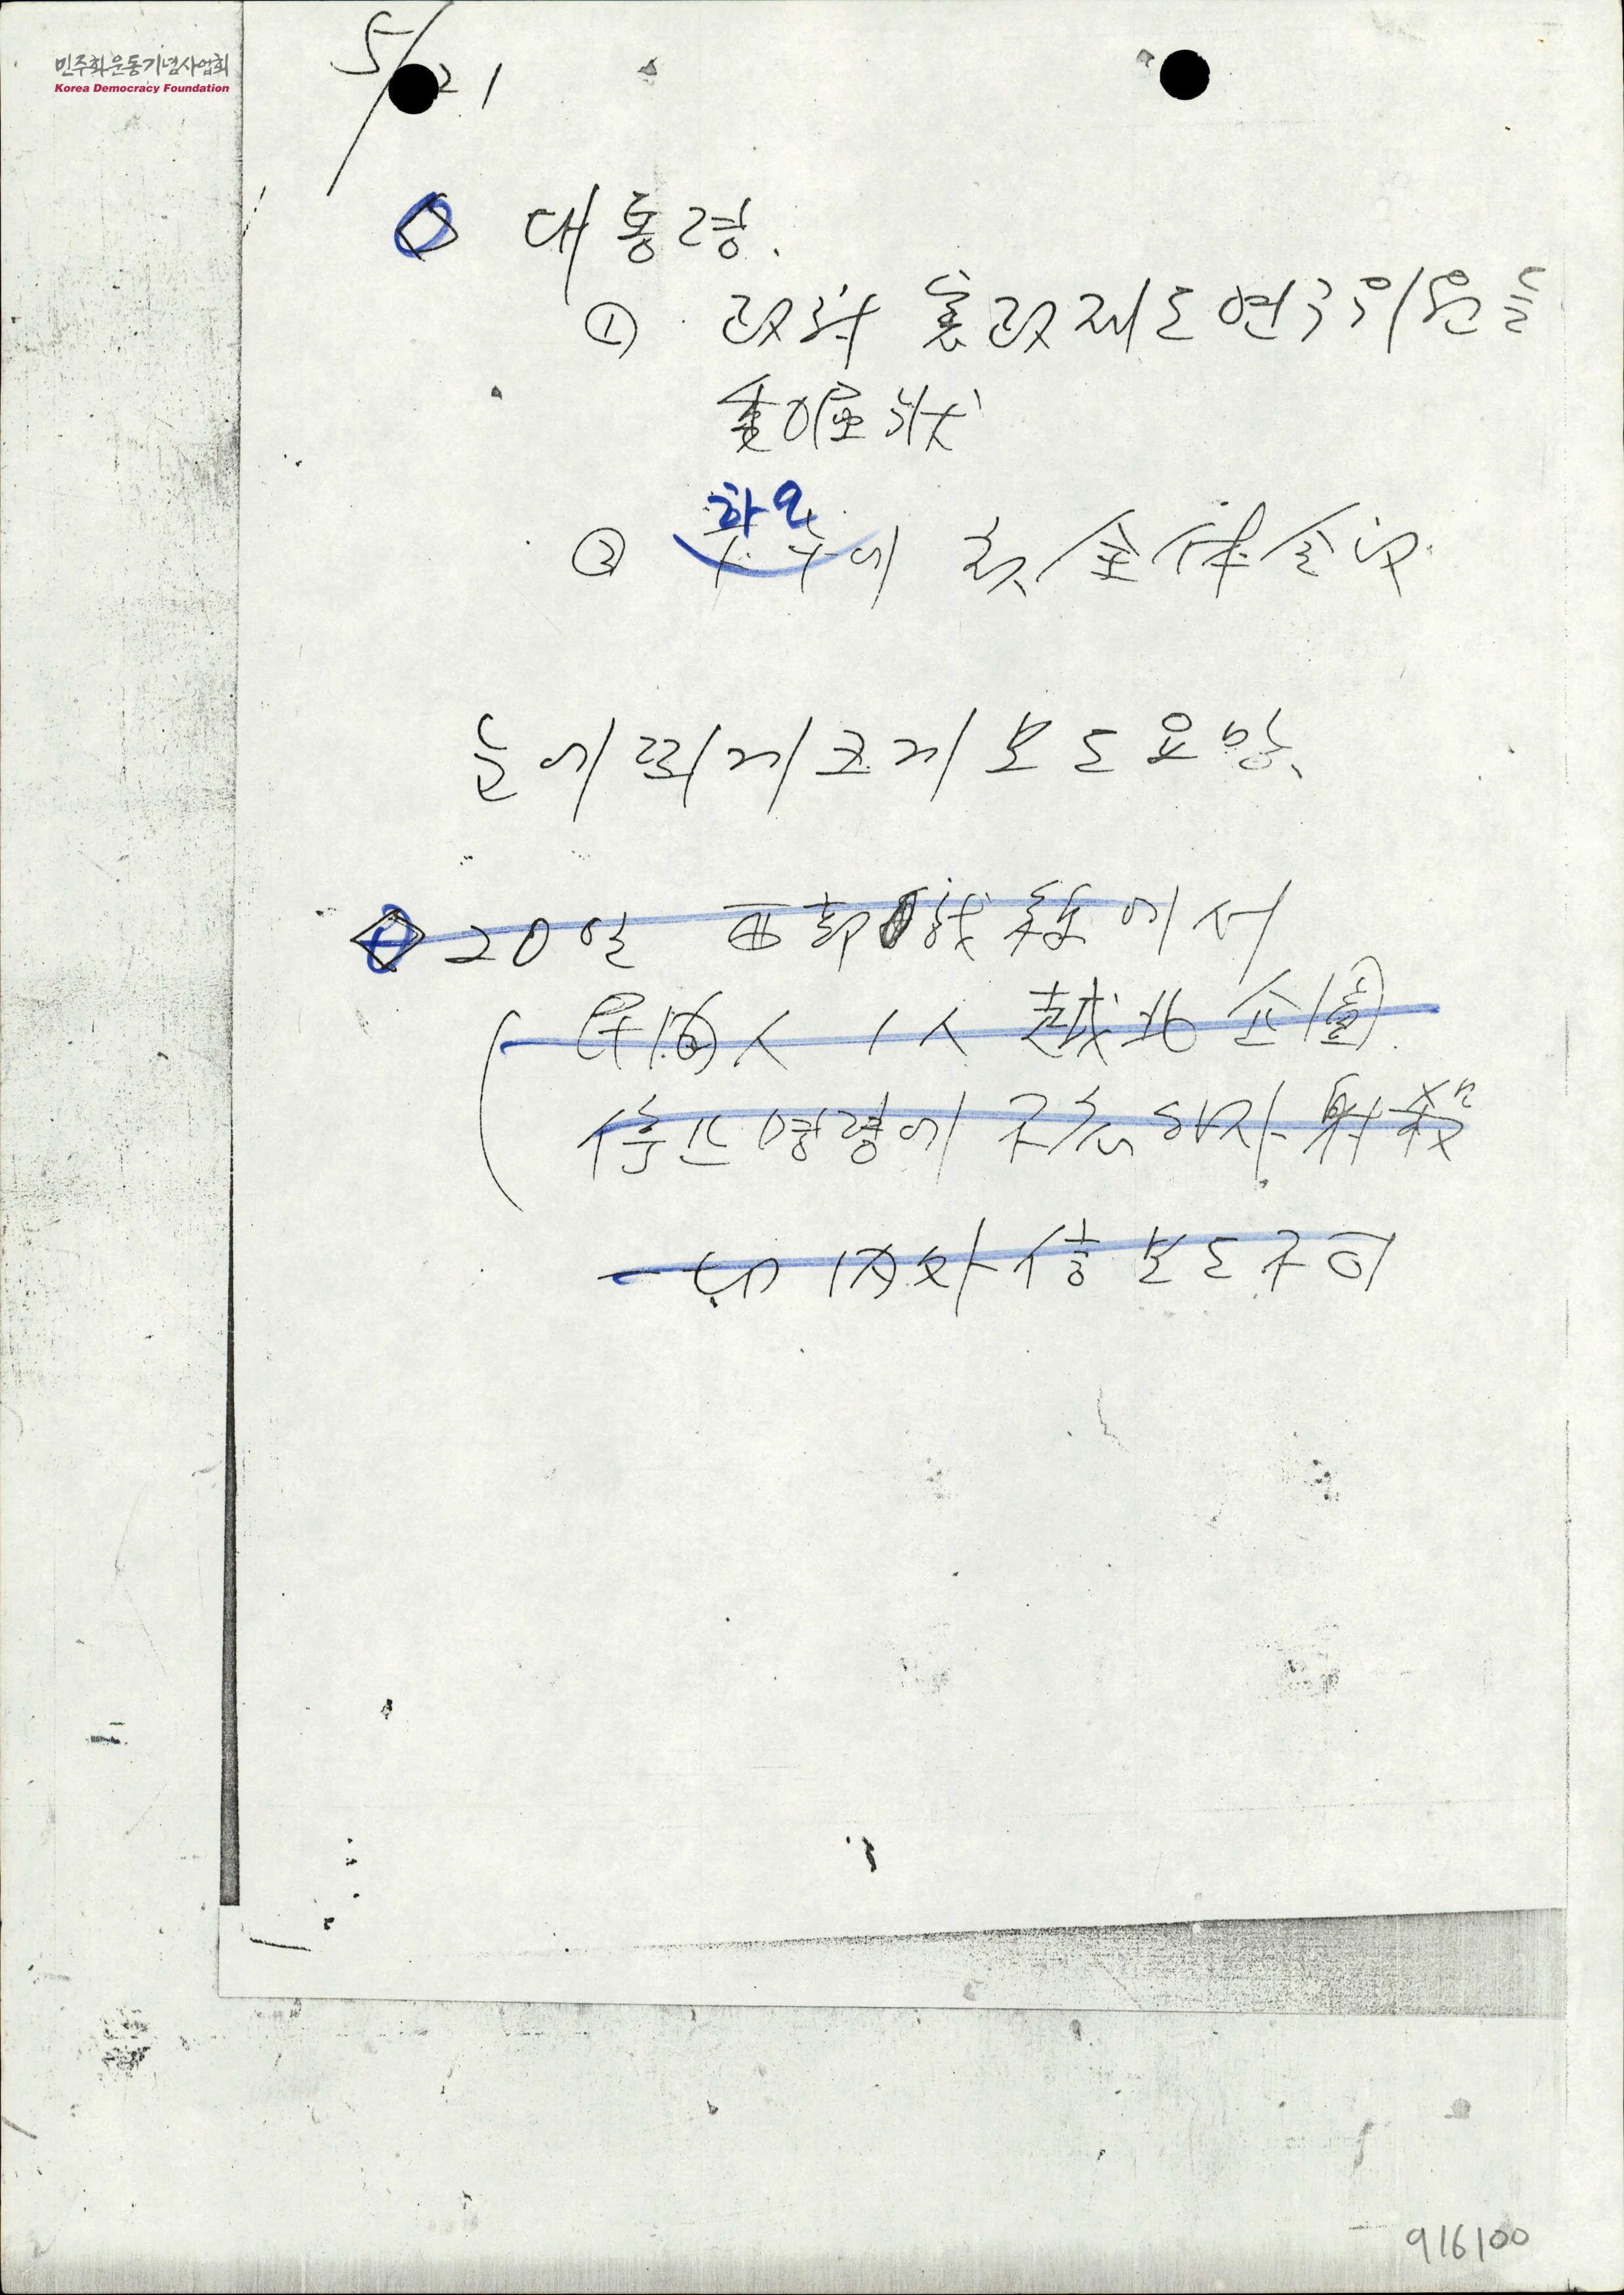 민주화운동기념사업회
Korea Democracy Foundation
5/21
◇ 대통령.
① 政府 憲政제도연구위원들
委囑狀
화요
② 에 첫 全体会议
눈에 띄게 크게 보도 요망.
◇ 20일 西部戰線에서
民間人 1人 越北企圖.
停止 명령에 不応하자 射殺
一切 内外信 보도 不可
916100